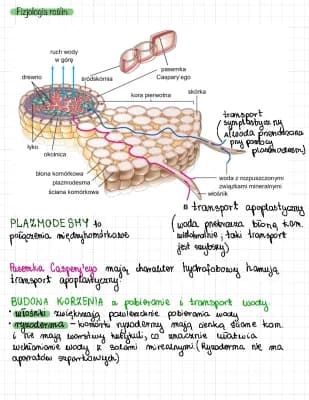 Fizjologia roślin
ruch wody
w górę
pasemka
Caspary'ego
drewno
śródskórnia
kora pierwotna
skórka
łyko
okolnica
błona komórkowa
plazmodesma
ściana komórkowa
woda z rozpuszczonymi
związkami mineralnymi
włośnik
transport
symplastyczny
(woda przenoszona
przy pomocy
plazmodesm)
transport apoplastyczny
(woda przenoszona błoną kom.
taki transport
jest szybszy)
PLAZMODESMY to
połączenia międzykomórkowe
Pasemka Caspary'ego mają charakter hydrofobowy hamują
transport apoplastyczny.
BUDOWA KORZENIA a pobieranie i transport wody.
• włośniki zwiększają powierzchnie pobierania wody
• ryzoderma - komórki ryzodermy mają cienką ścianę kom.
i nie mają warstwy kutykuli, co znacznie ułatwia
wchłanianie wody z solami mineralnymi (Ryzoderma nie ma
aparatów szparkowych)